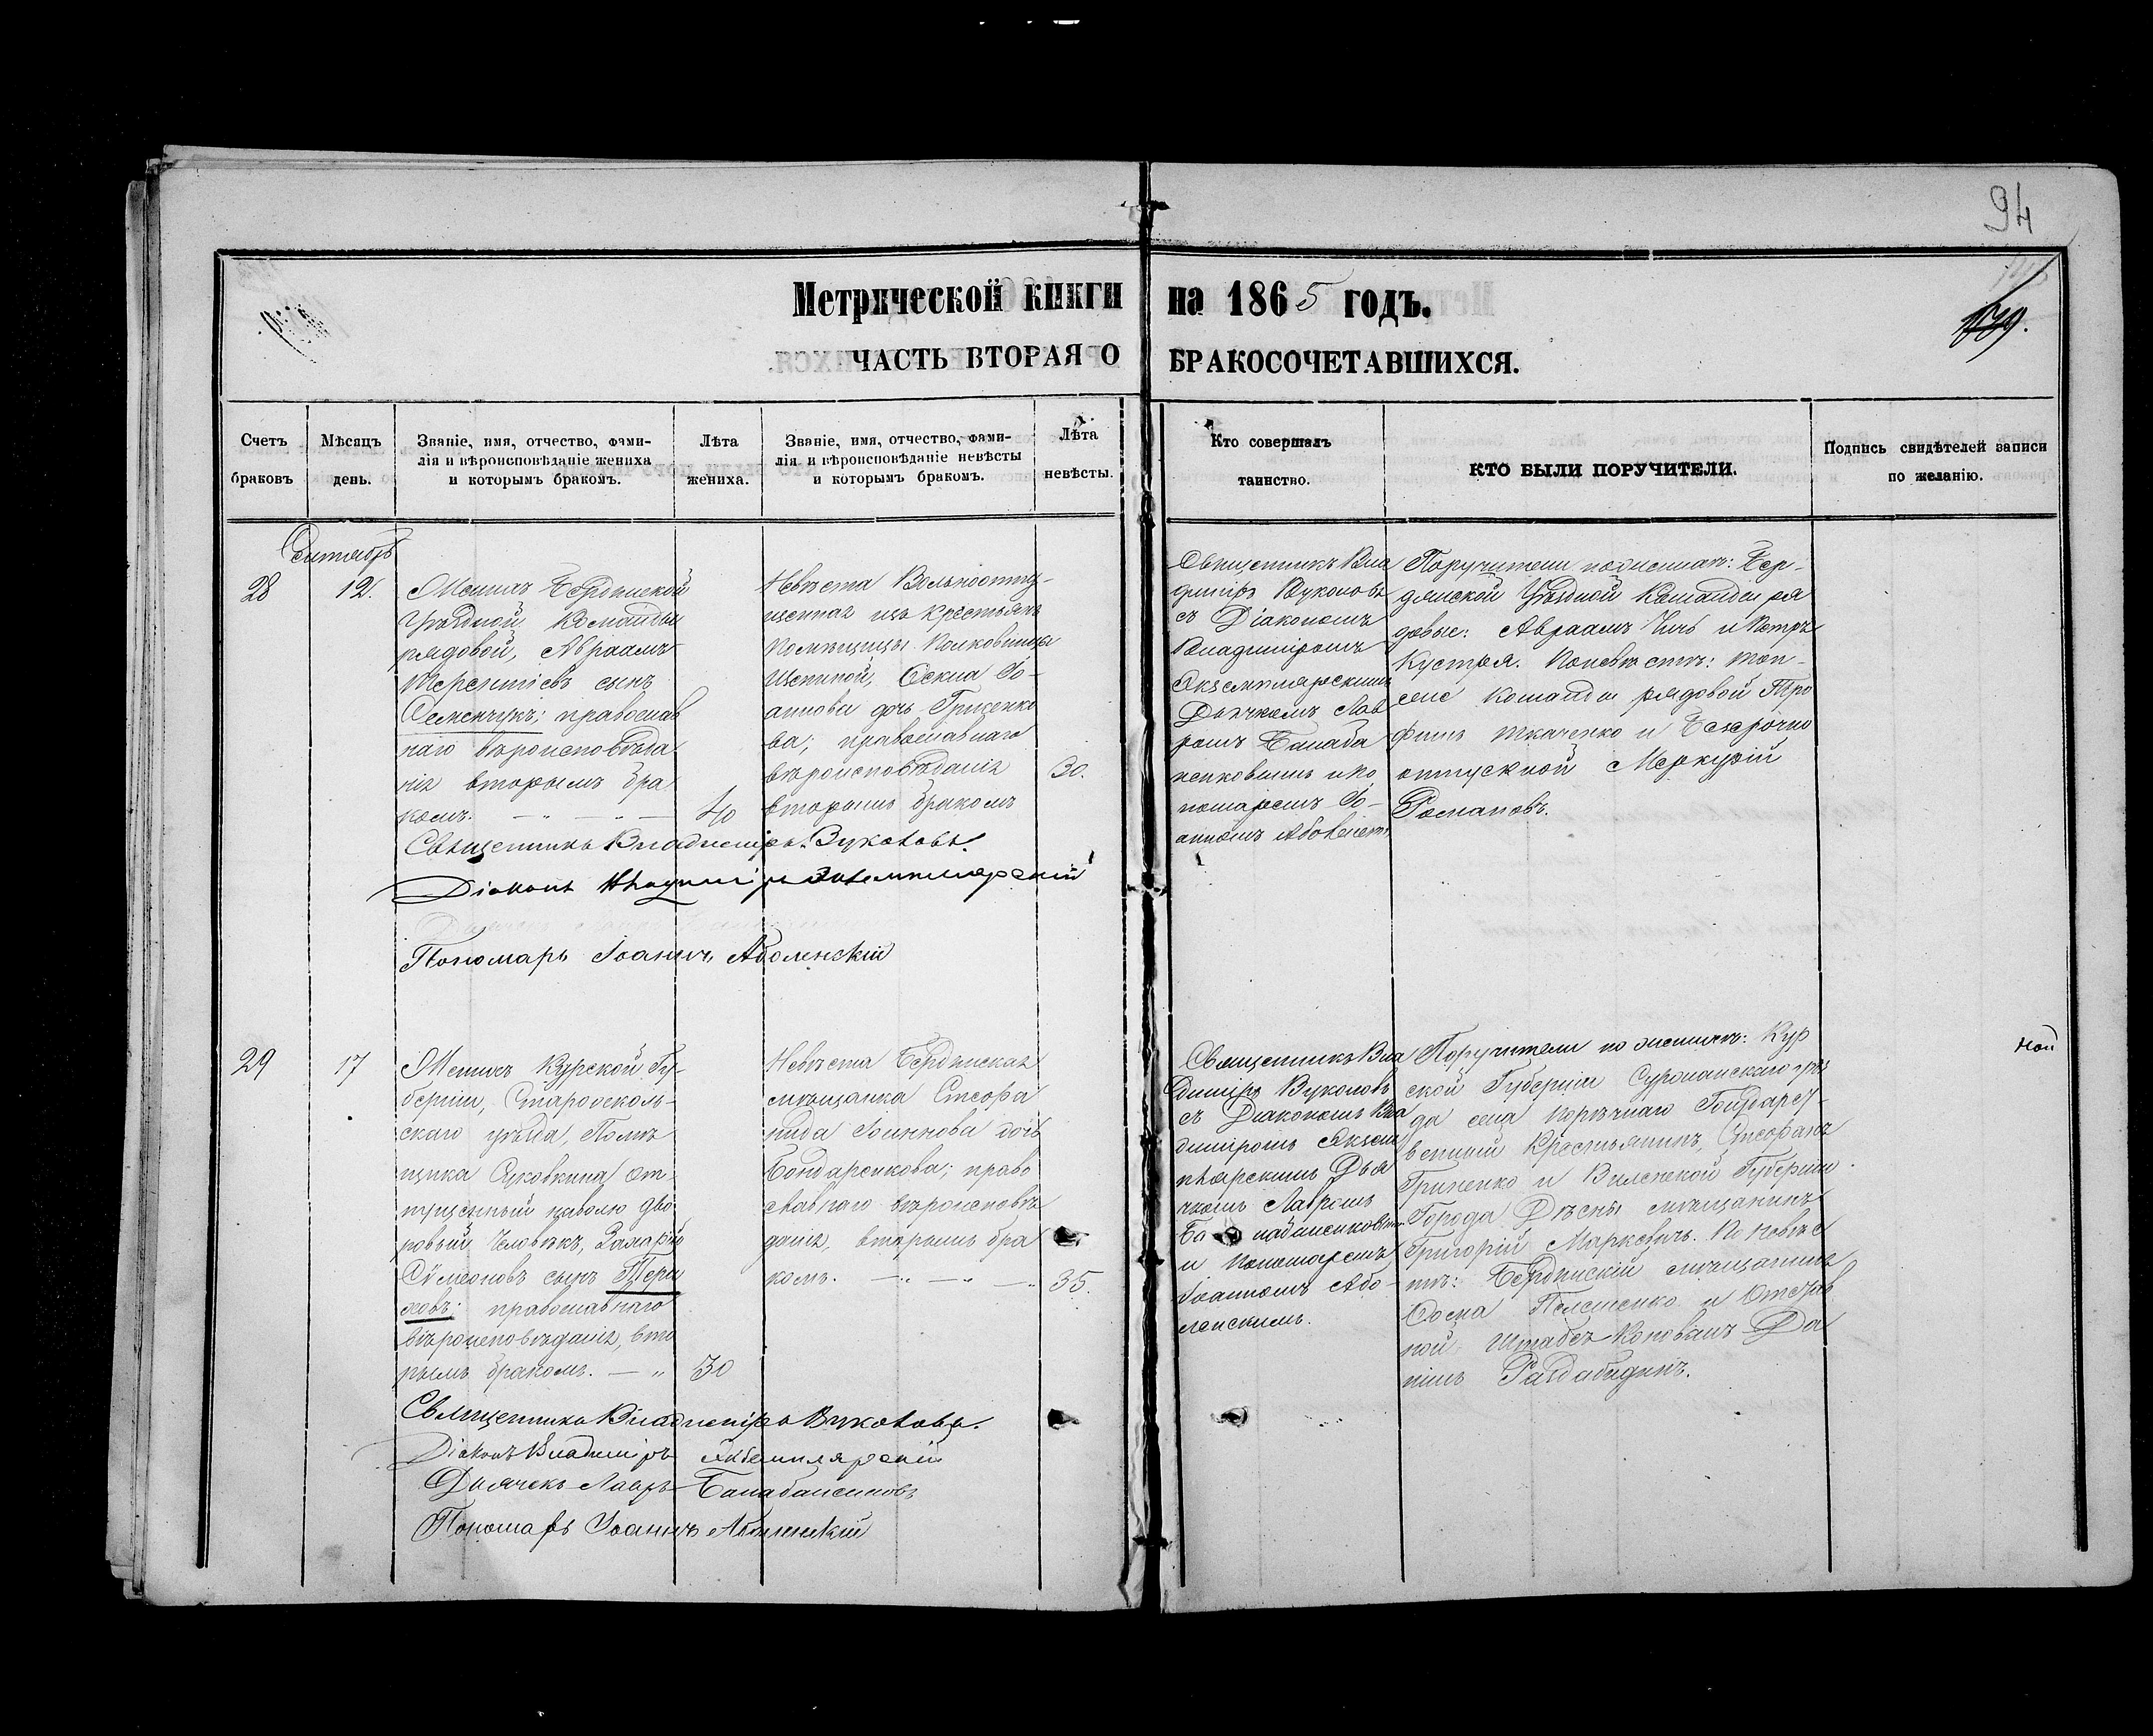 94
Метрической книги на 1865 годъ.
ЧАСТЬ ВТОРАЯ О БРАКОСОЧЕТАВШИХСЯ.
Счетъ браковъ
Мѣсяцъ день.
Званіе, имя, отчество, фами-
лія и вѣроисповѣданіе жениха
и которымъ бракомъ.
Лѣта жениха.
Званіе, имя, отчество, фами-
лія и вѣроисповѣданіе невѣсты
и которымъ бракомъ.
Лѣта невѣсты.
Кто совершалъ
таинство.
КТО БЫЛИ ПОРУЧИТЕЛИ.
Подпись свидѣтелей записи
по желанію.
Сентябрь
28
12.
Женихъ Бердянской
Уѣздной Команды
рядовой, Авраамъ
Терентіевъ сынъ
Семенчукъ; православ
наго вѣроисповѣда
нія вторымъ бра
комъ.
40
Невѣста Вольноотпу-
щенная изъ крестьянъ
помѣщицы Полковницы
Щепиной, Ѳекла Іо-
аннова дочь Гриценко
ва; православнаго
вѣроисповѣданія
вторымъ бракомъ
30.
Священникъ Вла
диміръ Вуколовъ
съ Діакономъ
Владиміромъ
Экземплярскимъ
Дьячкомъ Лав
ромъ Балаба
ненковымъ и по
номаремъ Іо-
анномъ Аболенск
Поручители по женихѣ: Бер-
дянской Уѣздной Команды ря
довые: Авраамъ Чичь и Петръ
Кустря. По невѣстѣ: той-
же команды рядовой Тро
фимъ Ткаченко и Безсрочно
отпускной Меркурій
Романовъ.
Священникъ Владиміръ Вуколовъ.
Діаконъ Владиміръ Экземплярскій
Пономарь Іоаннъ Аболенскій
29
17
Женихъ Курской Гу-
берніи, Старооскол-
скаго уѣзда, Помѣ
щика от-
пущенный на волю дво
ровый человѣкъ, Захарій
Сѵмеоновъ сынъ Тери
ховъ; православнаго
вѣроисповѣданія, вто
рымъ бракомъ.
30
Невѣста Бердянская
мѣщанка Стефа
нида Іоаннова дочь
Бондаренкова; право
славнаго вѣроисповѣ
данія, вторымъ бра
комъ.
35.
Священникъ Вла
диміръ Вуколовъ
съ Діакономъ Вла
диміромъ Экзем
плярскимъ Дья
чкомъ Лавромъ
Балабаненковымъ
и Пономаремъ
Іоанномъ Або-
ленскимъ.
Поручители по женихѣ: Кур
ской Губерніи Суджанскаго уѣз
да села Порѣчнаго Государст-
венный Крестьянинъ, Стефанъ
Гриненко и Виленской Губерніи
Города Дисны мѣщанинъ
Григорій Маркевичъ. По невѣс
тѣ: Бердянскій мѣщанинъ
Ѳома и Отстав
ной Штабсъ-Коновалъ Да
ніилъ
ной
Священникъ Владиміръ Вуколовъ.
Діаконъ Владиміръ Экземплярскій
Дьячекъ Лавръ Балабаненковъ
Пономарь Іоаннъ Аболенскій